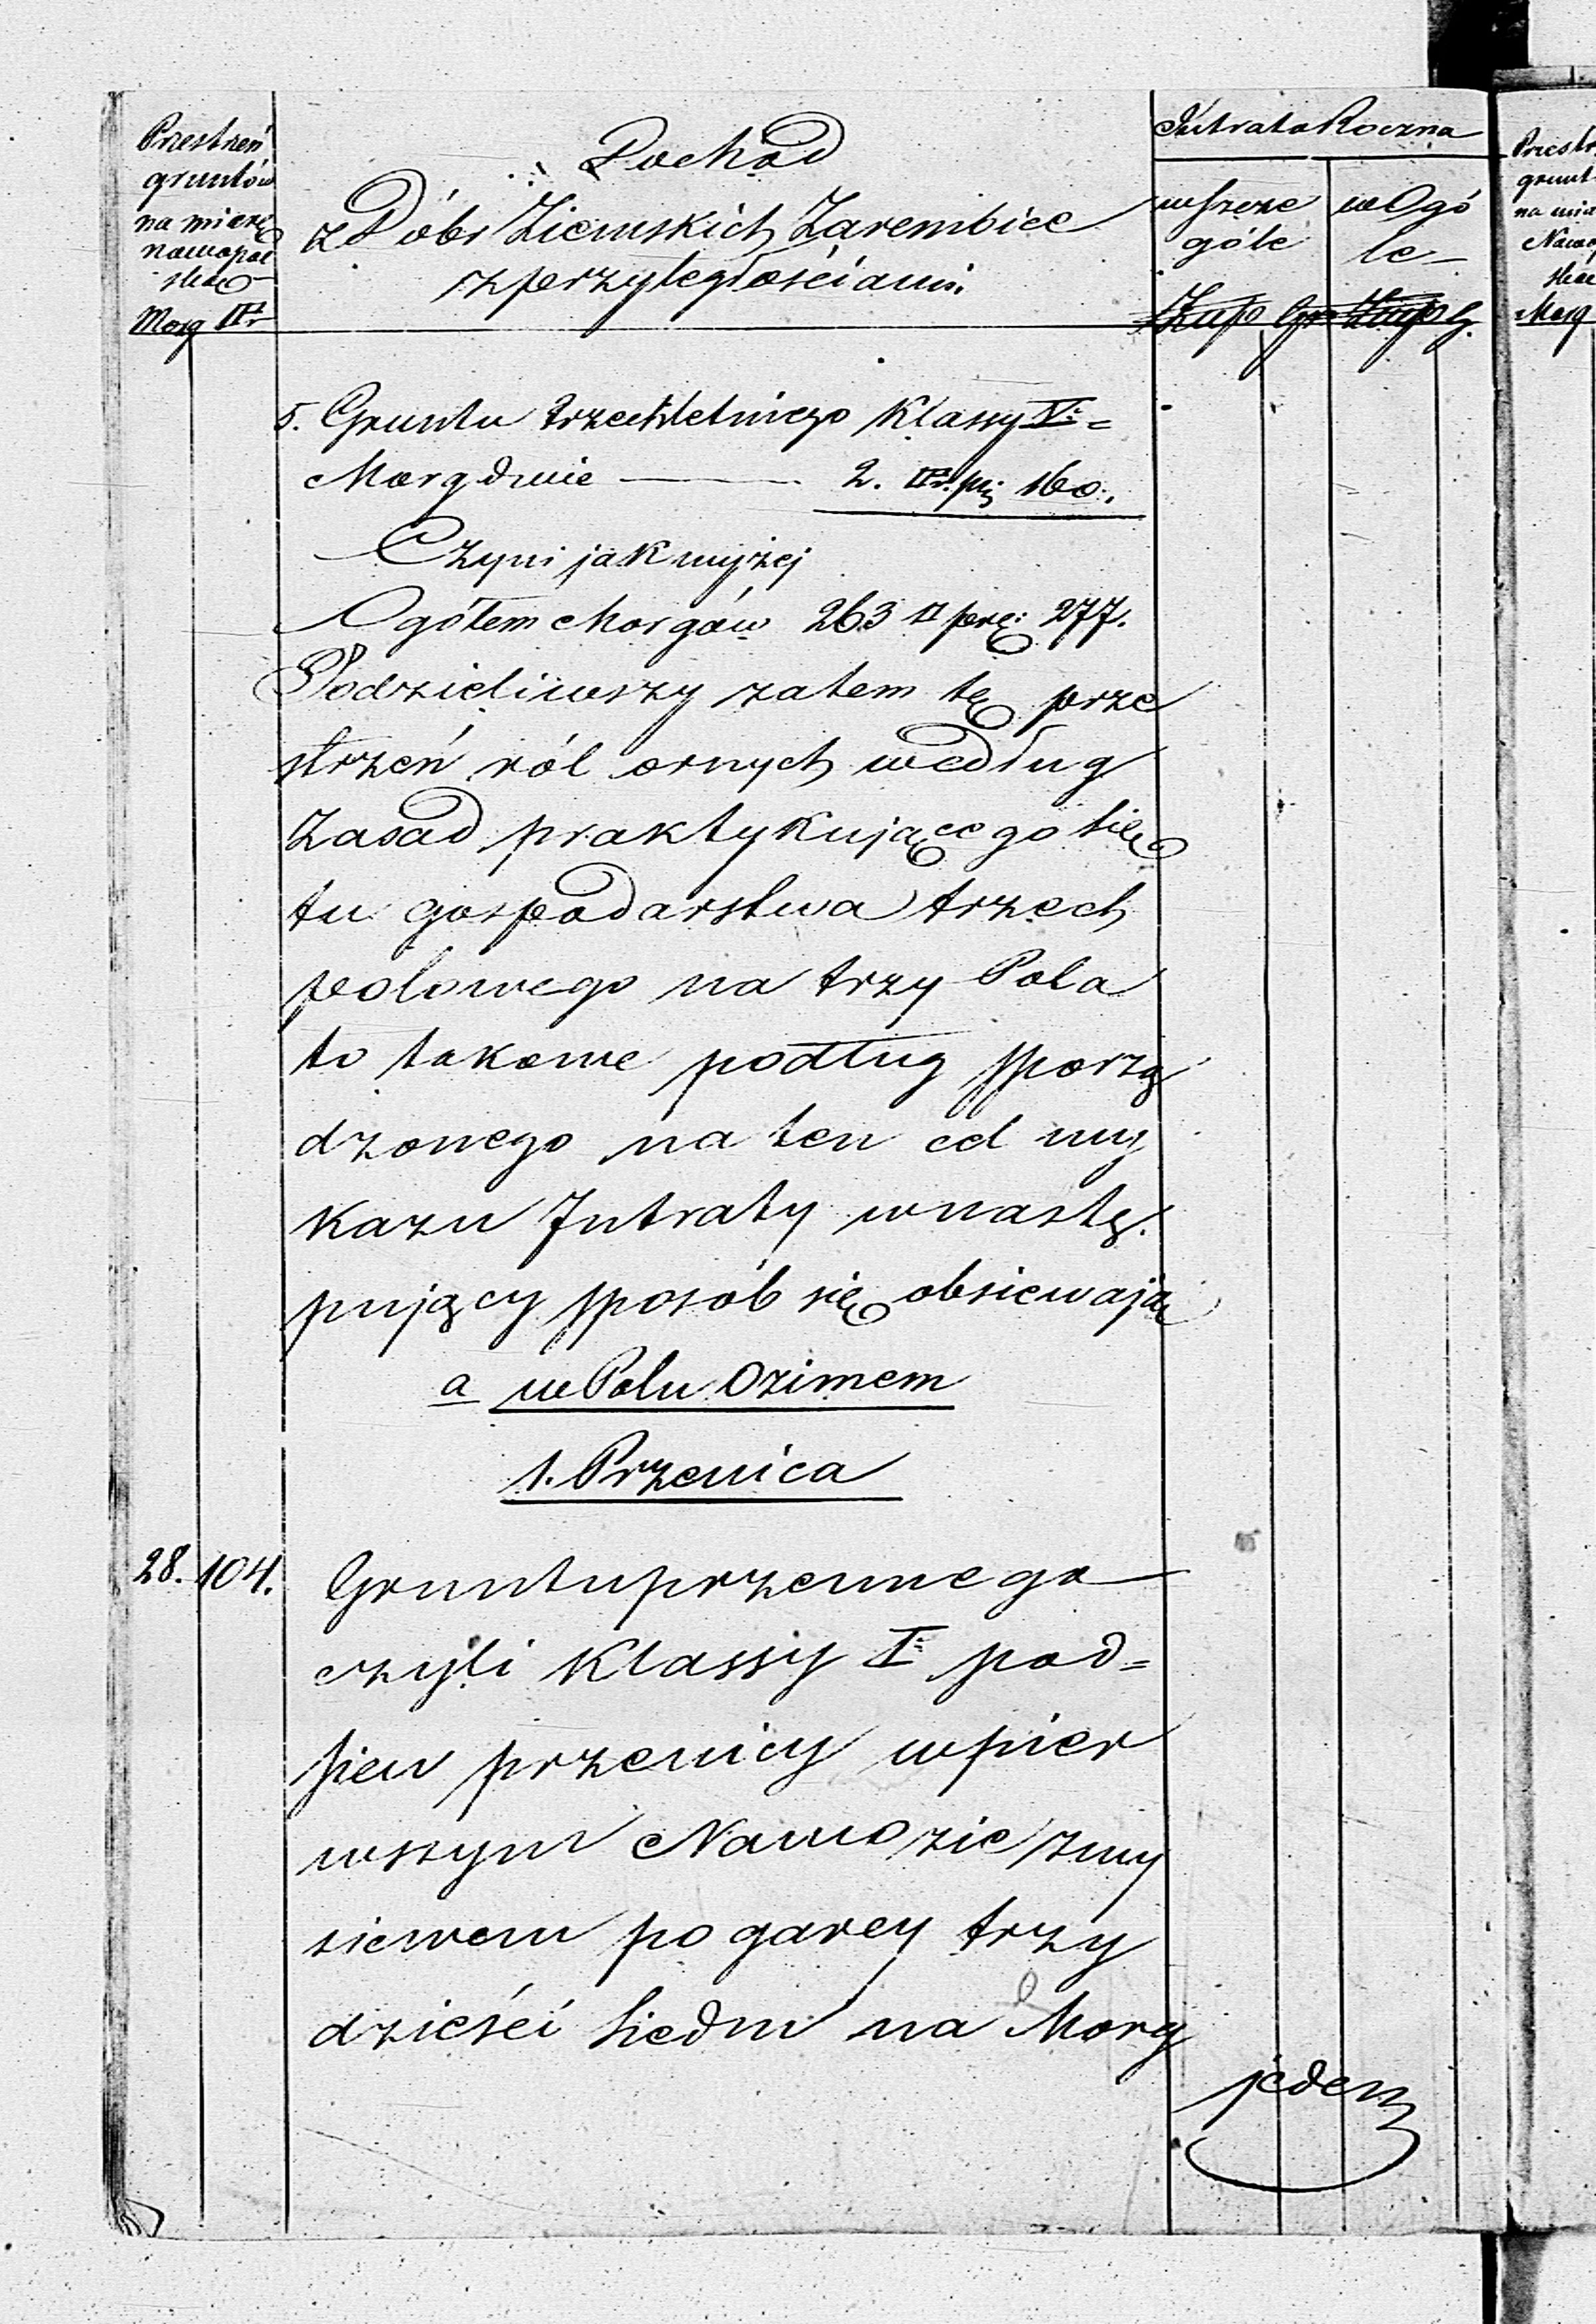 Przestrzeń
gruntów
na miarę
nowopol
ską
Morg □Pr
Dochód
z Dóbr Ziemskich Zarembice
z przyległościami.
Intrata Roczna
w Szcze
góle
w Ogó
le
5. Gruntu trzechletniego Klassy V:=
Morg dwie — 2. □Pr. 160.
Czyni jak wyżej
Ogółem Morgów 263 □ prę: 277.
Podzieliwszy zatem tę prze
strzeń ról ornych według
Zasad praktykującego się
tu gospodarstwa trzech
polowego na trzy Pola
to takowe podług sporzą
dzonego na ten cel wy
kazu Intraty w nastę.
pujący sposób się obsiewają
a w Polu Ozimem
1. Przenica
28. 104. Gruntu przennego
czyli Klassy I: pod=
siew przenicy w pier
wszym Nawozie z wy
siewem po garcy trzy
dzieści siedm na Morg
jeden